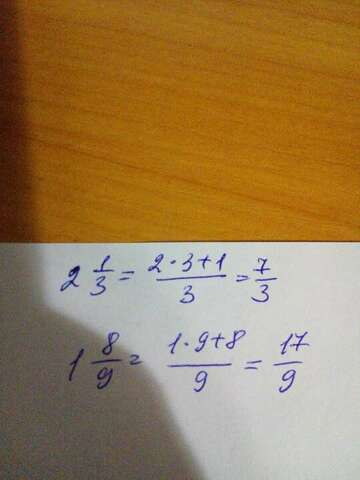 2 1/3 = (2·3+1)/3 = 7/3
1 8/9 = (1·9+8)/9 = 17/9